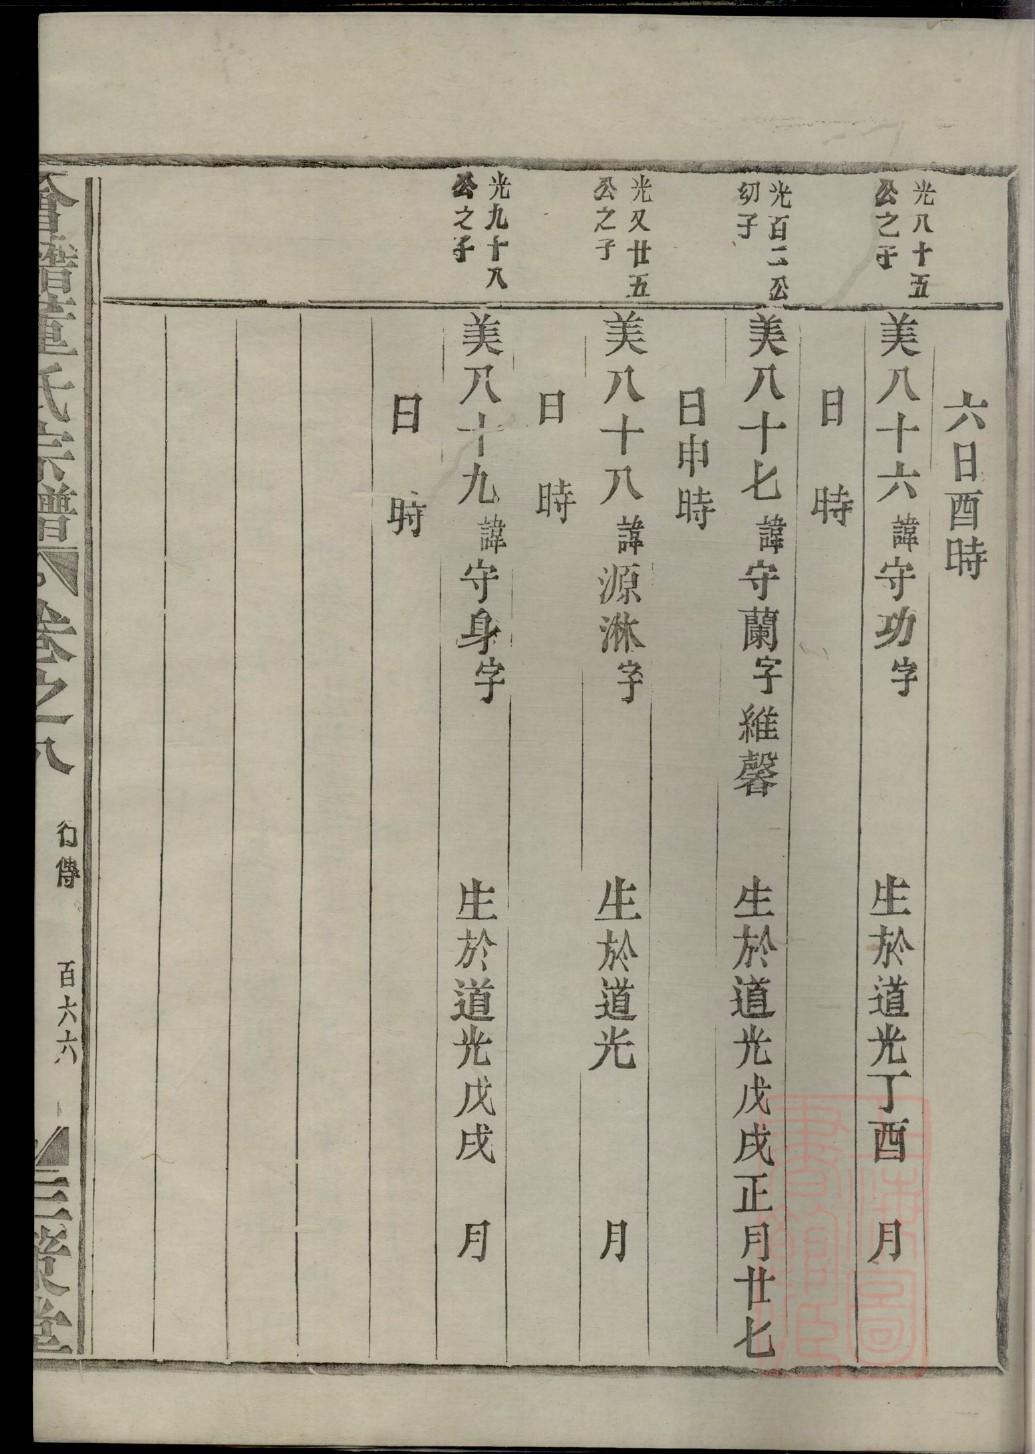 六日酉時
光八十五
公之子
美八十六諱守功字 生於道光丁酉 月
日 時
光百二公
幼子
美八十七諱守蘭字維馨 生於道光戊戌正月廿七
日申時
光又廿五
公之子
美八十八諱源淋字 生於道光 月
日 時
光九十八
公之子
美八十九諱守身字 生於道光戊戌 月
日 時
會稽董氏宗譜 卷之八 行傳 百六六 三策堂
上海圖
書館藏